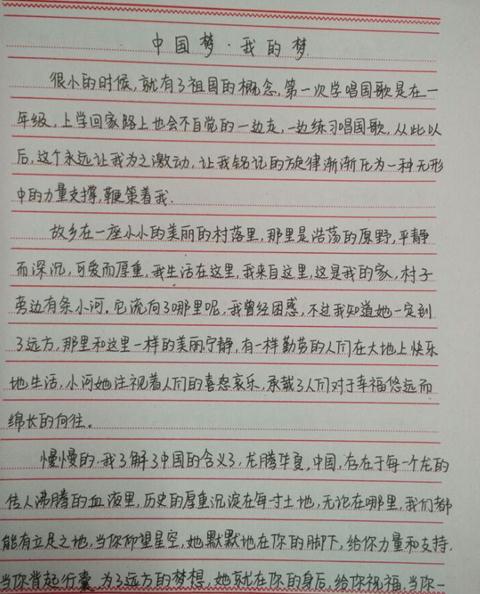 中国梦·我的梦
很小的时候,就有了祖国的概念,第一次学唱国歌是在一
年级,上学回家路上也会不自觉的一边走,一边练习唱国歌,从此以
后,这个永远让我为之激动,让我铭记的旋律渐渐化为一种无形
中的力量支撑,鞭策着我.
故乡在一座小小的美丽的村落里,那里是浩荡的原野,平静
而深沉,可爱而厚重,我生活在这里,我来自这里,这是我的家,村子
旁边有条小河.它流向了哪里呢,我曾经困惑,不过我知道她一定到
了远方,那里和这里一样的美丽宁静,有一样勤劳的人们在大地上快乐
地生活,小河她注视着人们的喜怒哀乐,承载了人们对于幸福悠远而
绵长的向往。
慢慢的.我了解了中国的含义了,龙腾华夏,中国,存在于每一个龙的
传人沸腾的血液里,历史的厚重沉淀在每寸土地,无论在哪里,我们都
能有立足之地,当你仰望星空,她默默地在你的脚下,给你力量和支持.
当你背起行囊 为了远方的梦想,她就在你的身后,给你祝福,当你一